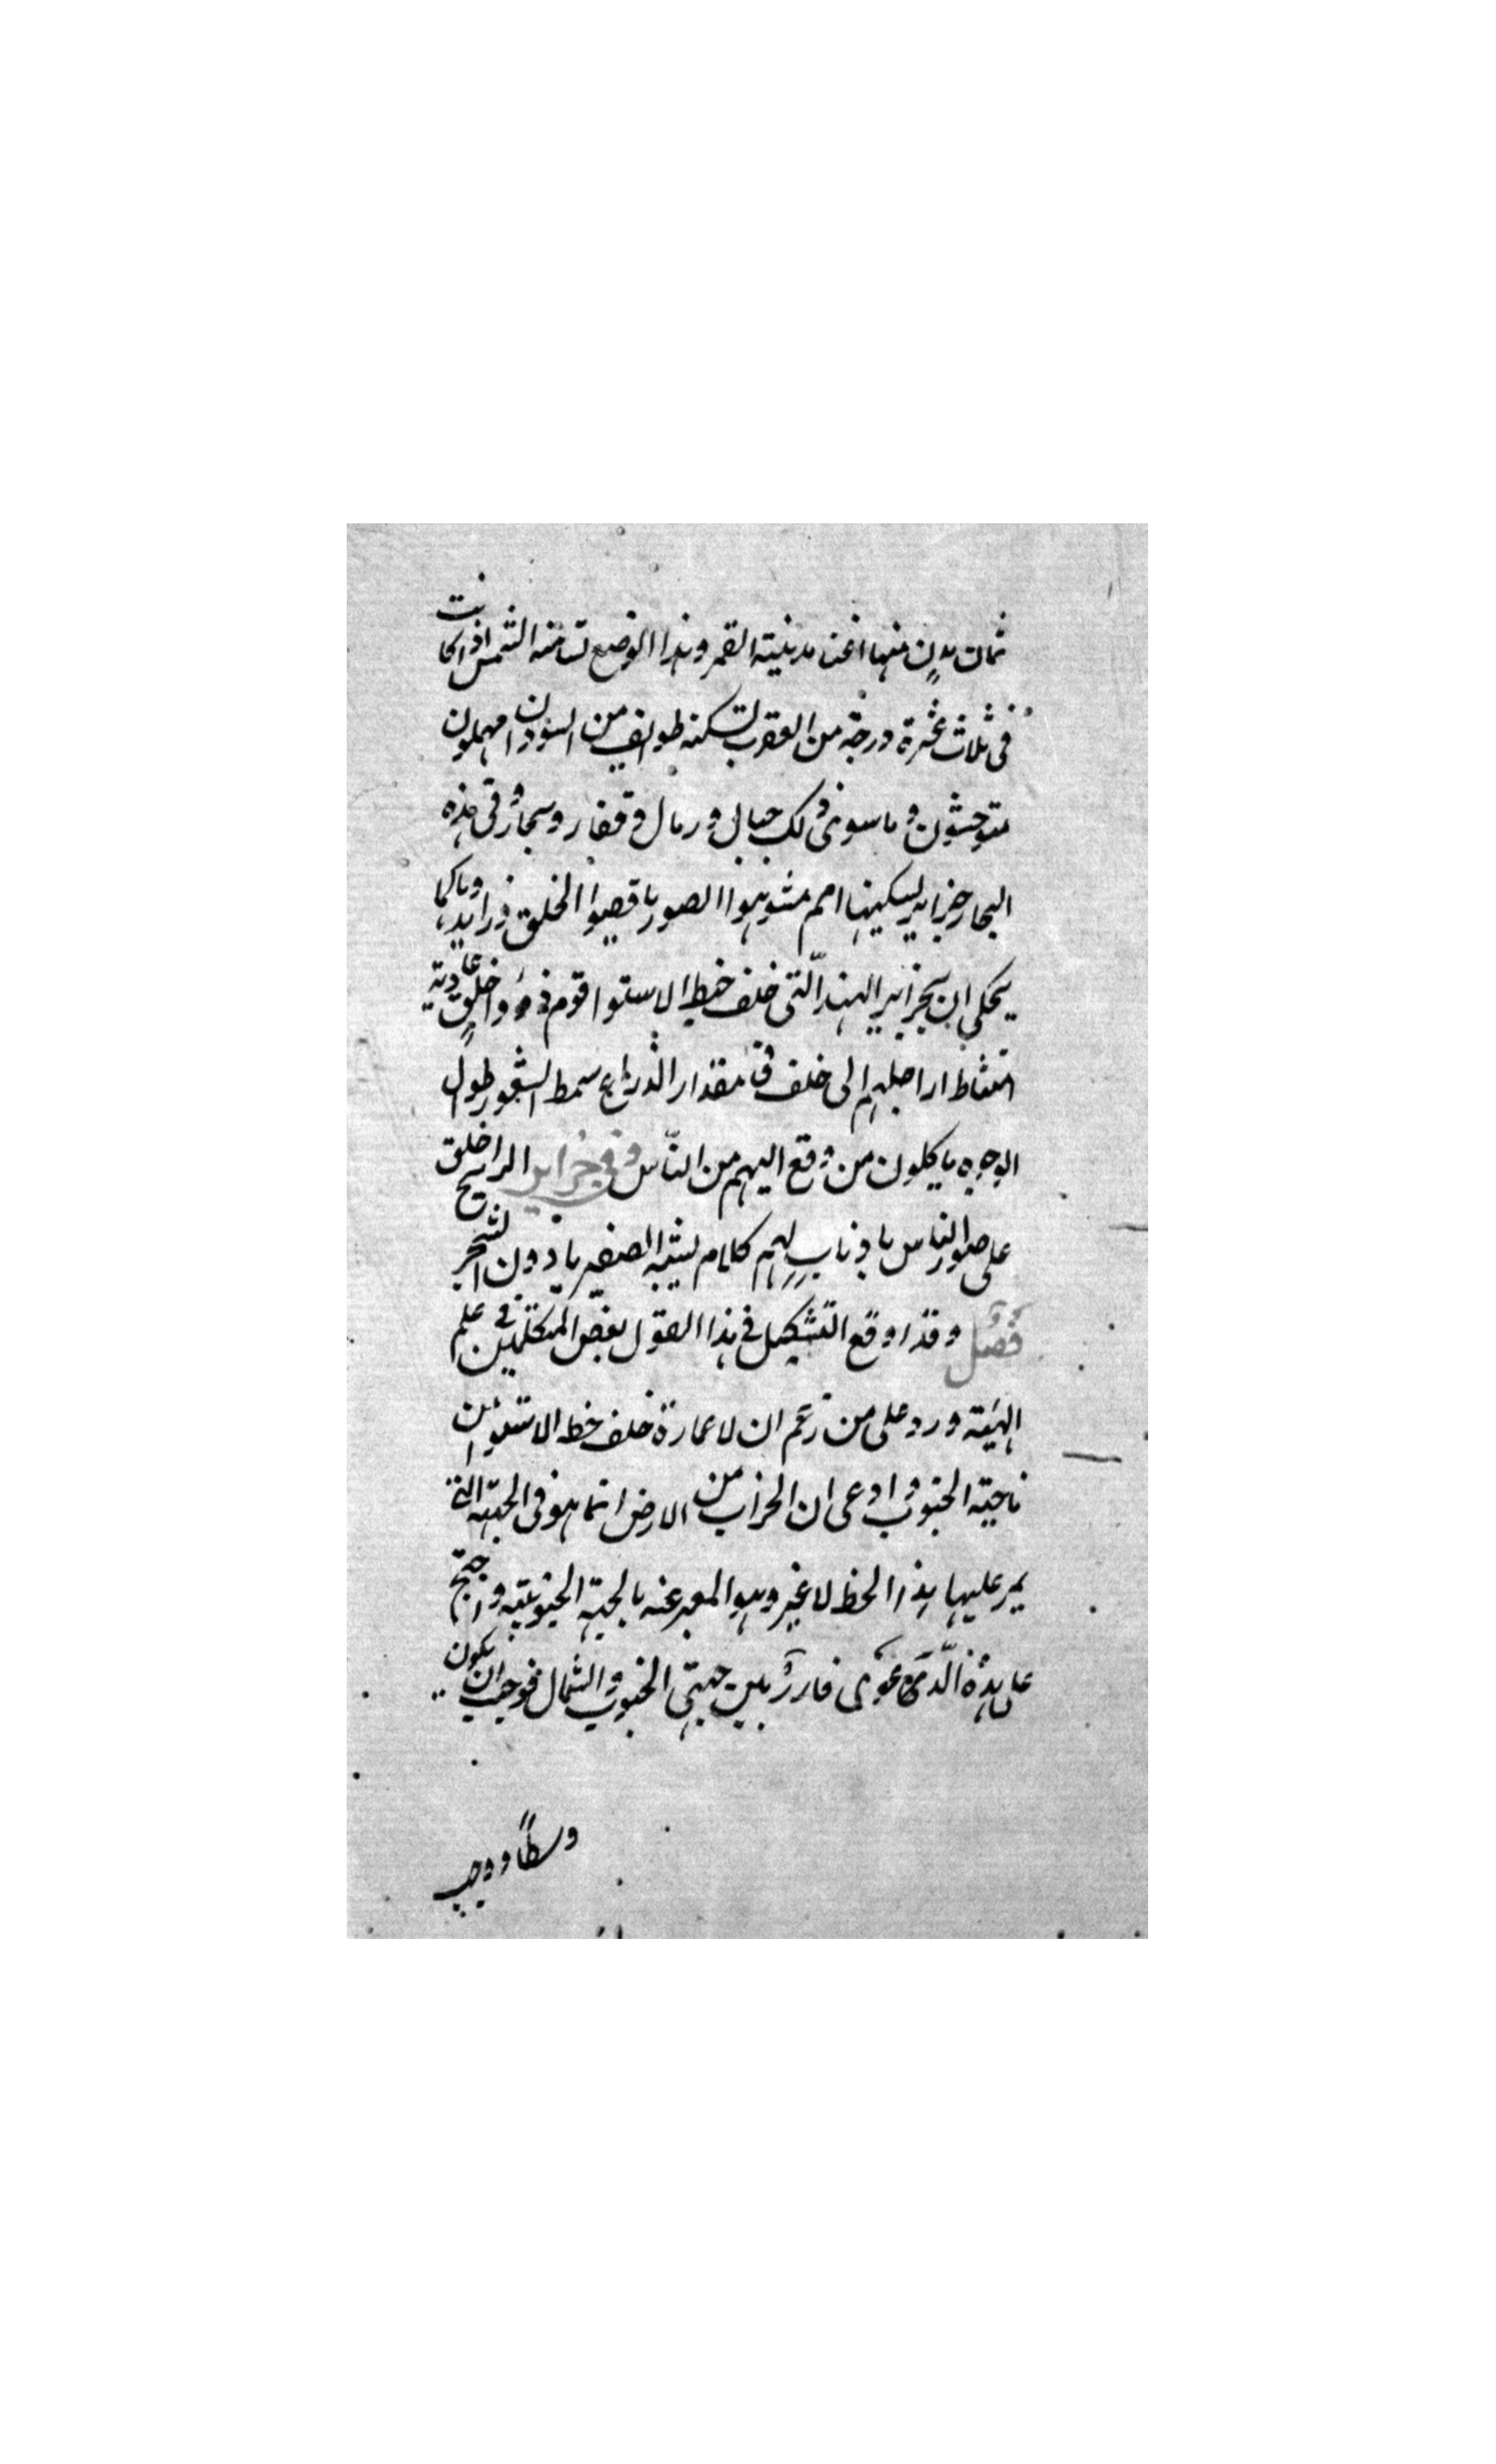 ثمان مدن منها اغنا مدينة القمر وهذا الوضع تسامته الشمس اذا كانت
فى ثلاث عشرة درجة من العقرب تسكنه طوايف من السودان مهملون
متوحشون وما سوى ذلك جبال ورمال وقفار وبحار وفى هذه
البحار جزاير يسكنها امم مشوهوا الصور ناقصوا الخلق وزايدها وما
يحكى ان بجزاير الهند التى خلف خط الاستوا قوم ذووا خلق عادية
ارجلهم الى خلف مقدار الذراع سمط الشعور طول
الوجوه ياكلون من وقع اليهم من الناس وفى جزاير خلق
على صور الناس باذناب لهم كلام يشبه الصفير ياوون الشجر
فصل وقد اوقع التشكيك فى هذا القول بعض المتكلمين فى علم
الهيئة ورد على من زعم ان لا عمارة خلف خط الاستوا من
ناحية الجنوب وادعى ان الخراب من الارض انما هو فى الجهة التى
يمر عليها هذا الخط لا غير وهو المعبر عنه بالجهة الجنوبية واحتج
على هذه الدعوى فارق بين جهتى الجنوب والشمال فوجب ان يكون
وسطا ووجب